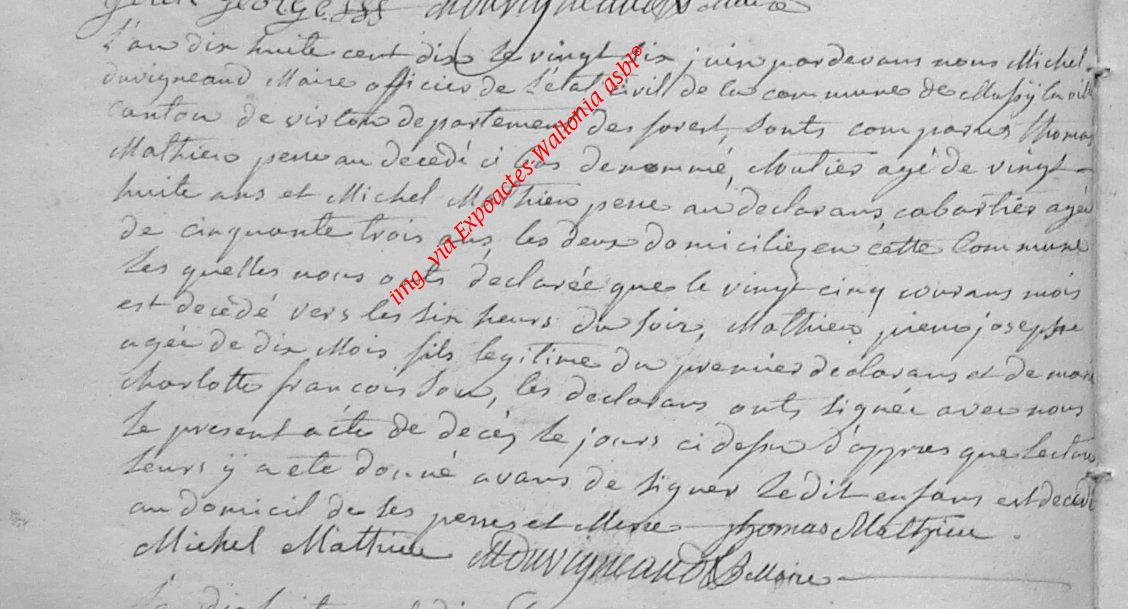 L'an dix huite cent dix le vingt six juin pardevans nous Michel
duvigneaud Maire officier de L'état Civil de la commune de Mussÿ la ville
canton de virton departement des forest, sonts comparus thomas
Mathieu perre au decedé ci bas denommé, Moulier agé de vingt
huite ans et Michel Mathieu perre au declarans cabartier agée
de cinquante trois ans les deux domiciliez en cétte Commune
Les quelles nous onts déclarée que le vingt cinq courans mois
est decédé vers les six heurs du soir, Mathieu pierre josephe
agée de dix Mois fils legitime du premier declarans et de marie
Charlotte francois son, les declarans onts signée avec nous
Le present acte de decés Le jours ci dessu d'appres que Lecture
Leurs ÿ a ete donné avans de signer Ledit enfans est decedé
au domicil de ses perres et Mere thomas Mathieu
Michel Mathieu MDuvigneaud Maire
img. via Expoactes-Wallonia asbl®